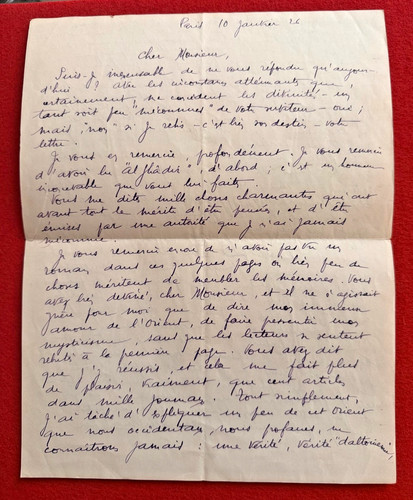 Paris 10 Janvier 26
Cher Monsieur,
Suis-je inexcusable de ne vous répondre qu'aujour-
d'hui ? Avec les circonstances atténuantes que,
certainement me concèdent les divinités - un
tant soit peu "méconnues" de votre serviteur - oui ;
mais, "non" si je relis - c'est très son destin - votre
lettre.
Je vous en remercie, profondément. Je vous remercie
d'avoir lu "Al Ghâdir", d'abord ; c'est un honneur
incroyable que vous lui faites.
Vous me dites mille choses charmantes, qui ont
avant tout le mérite d'être pensées, et d'être
émises par une autorité que je n'ai jamais
méconnue.
Je vous remercie encore de n'avoir pas vu un
roman dans ces quelques pages où très peu de
choses méritent de meubler les mémoires. Vous
avez très deviné, cher Monsieur, et il ne s'agissait
guère pour moi que de dire mon immense
amour de l'Orient, de faire pressentir mon
mysticisme, sans que les lecteurs se sentent
rebutés à la première page. Vous avez dit
que j'y réussis, et cela me fait plus
de plaisir, vraiment, que cent articles
dans mille journaux. Tout simplement,
j'ai tâché d'expliquer un peu de cet Orient
que nous occidentaux, nous profanes, ne
connaîtrons jamais : une vérité, vérité